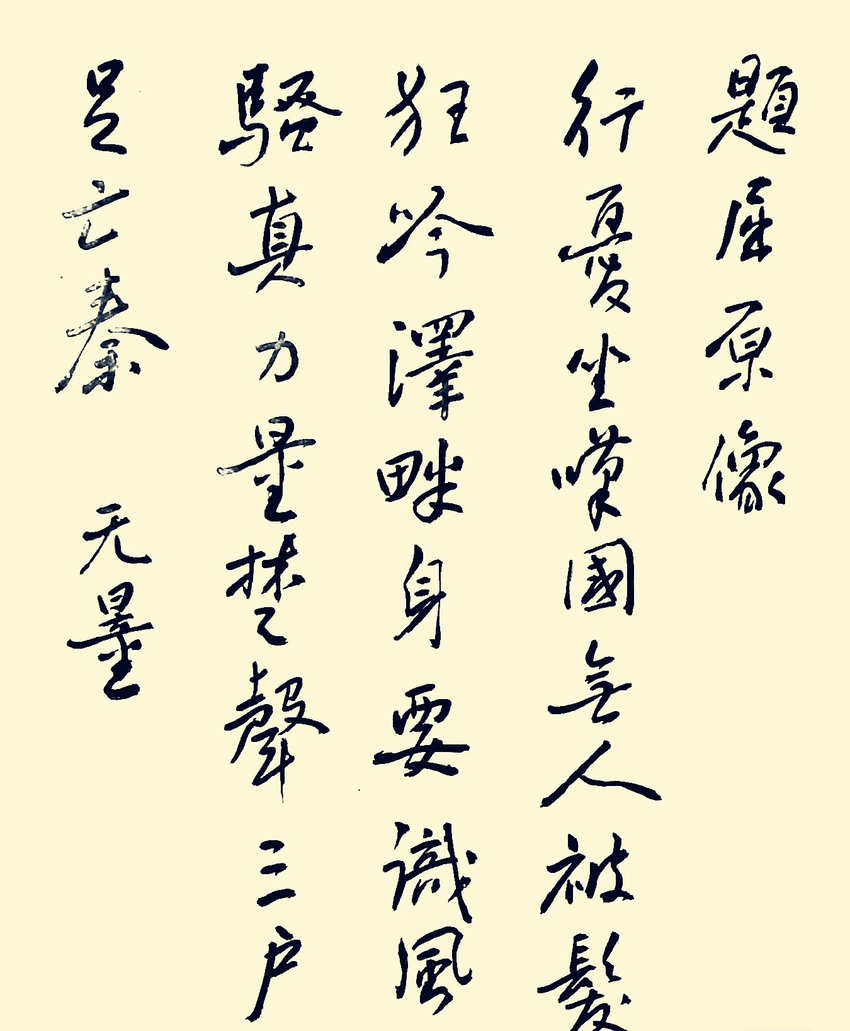 題屈原像
行憂坐嘆國無人被髮
狂吟澤畔身要識風
騷真力量楚聲三户
足亡秦 无量